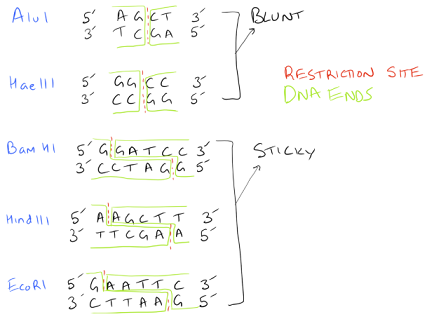 AluI 5´ AG CT 3´ BLUNT
3´ TC GA 5´
HaeIII 5´ GG CC 3´
3´ CC GG 5´
RESTRICTION SITE
DNA ENDS
BamHI 5´ G GATCC 3´
3´ CCTAG G 5´
STICKY
HindIII 5´ A AGCTT 3´
3´ TTCGA A 5´
EcoRI 5´ G AATTC 3´
3´ CTTAA G 5´